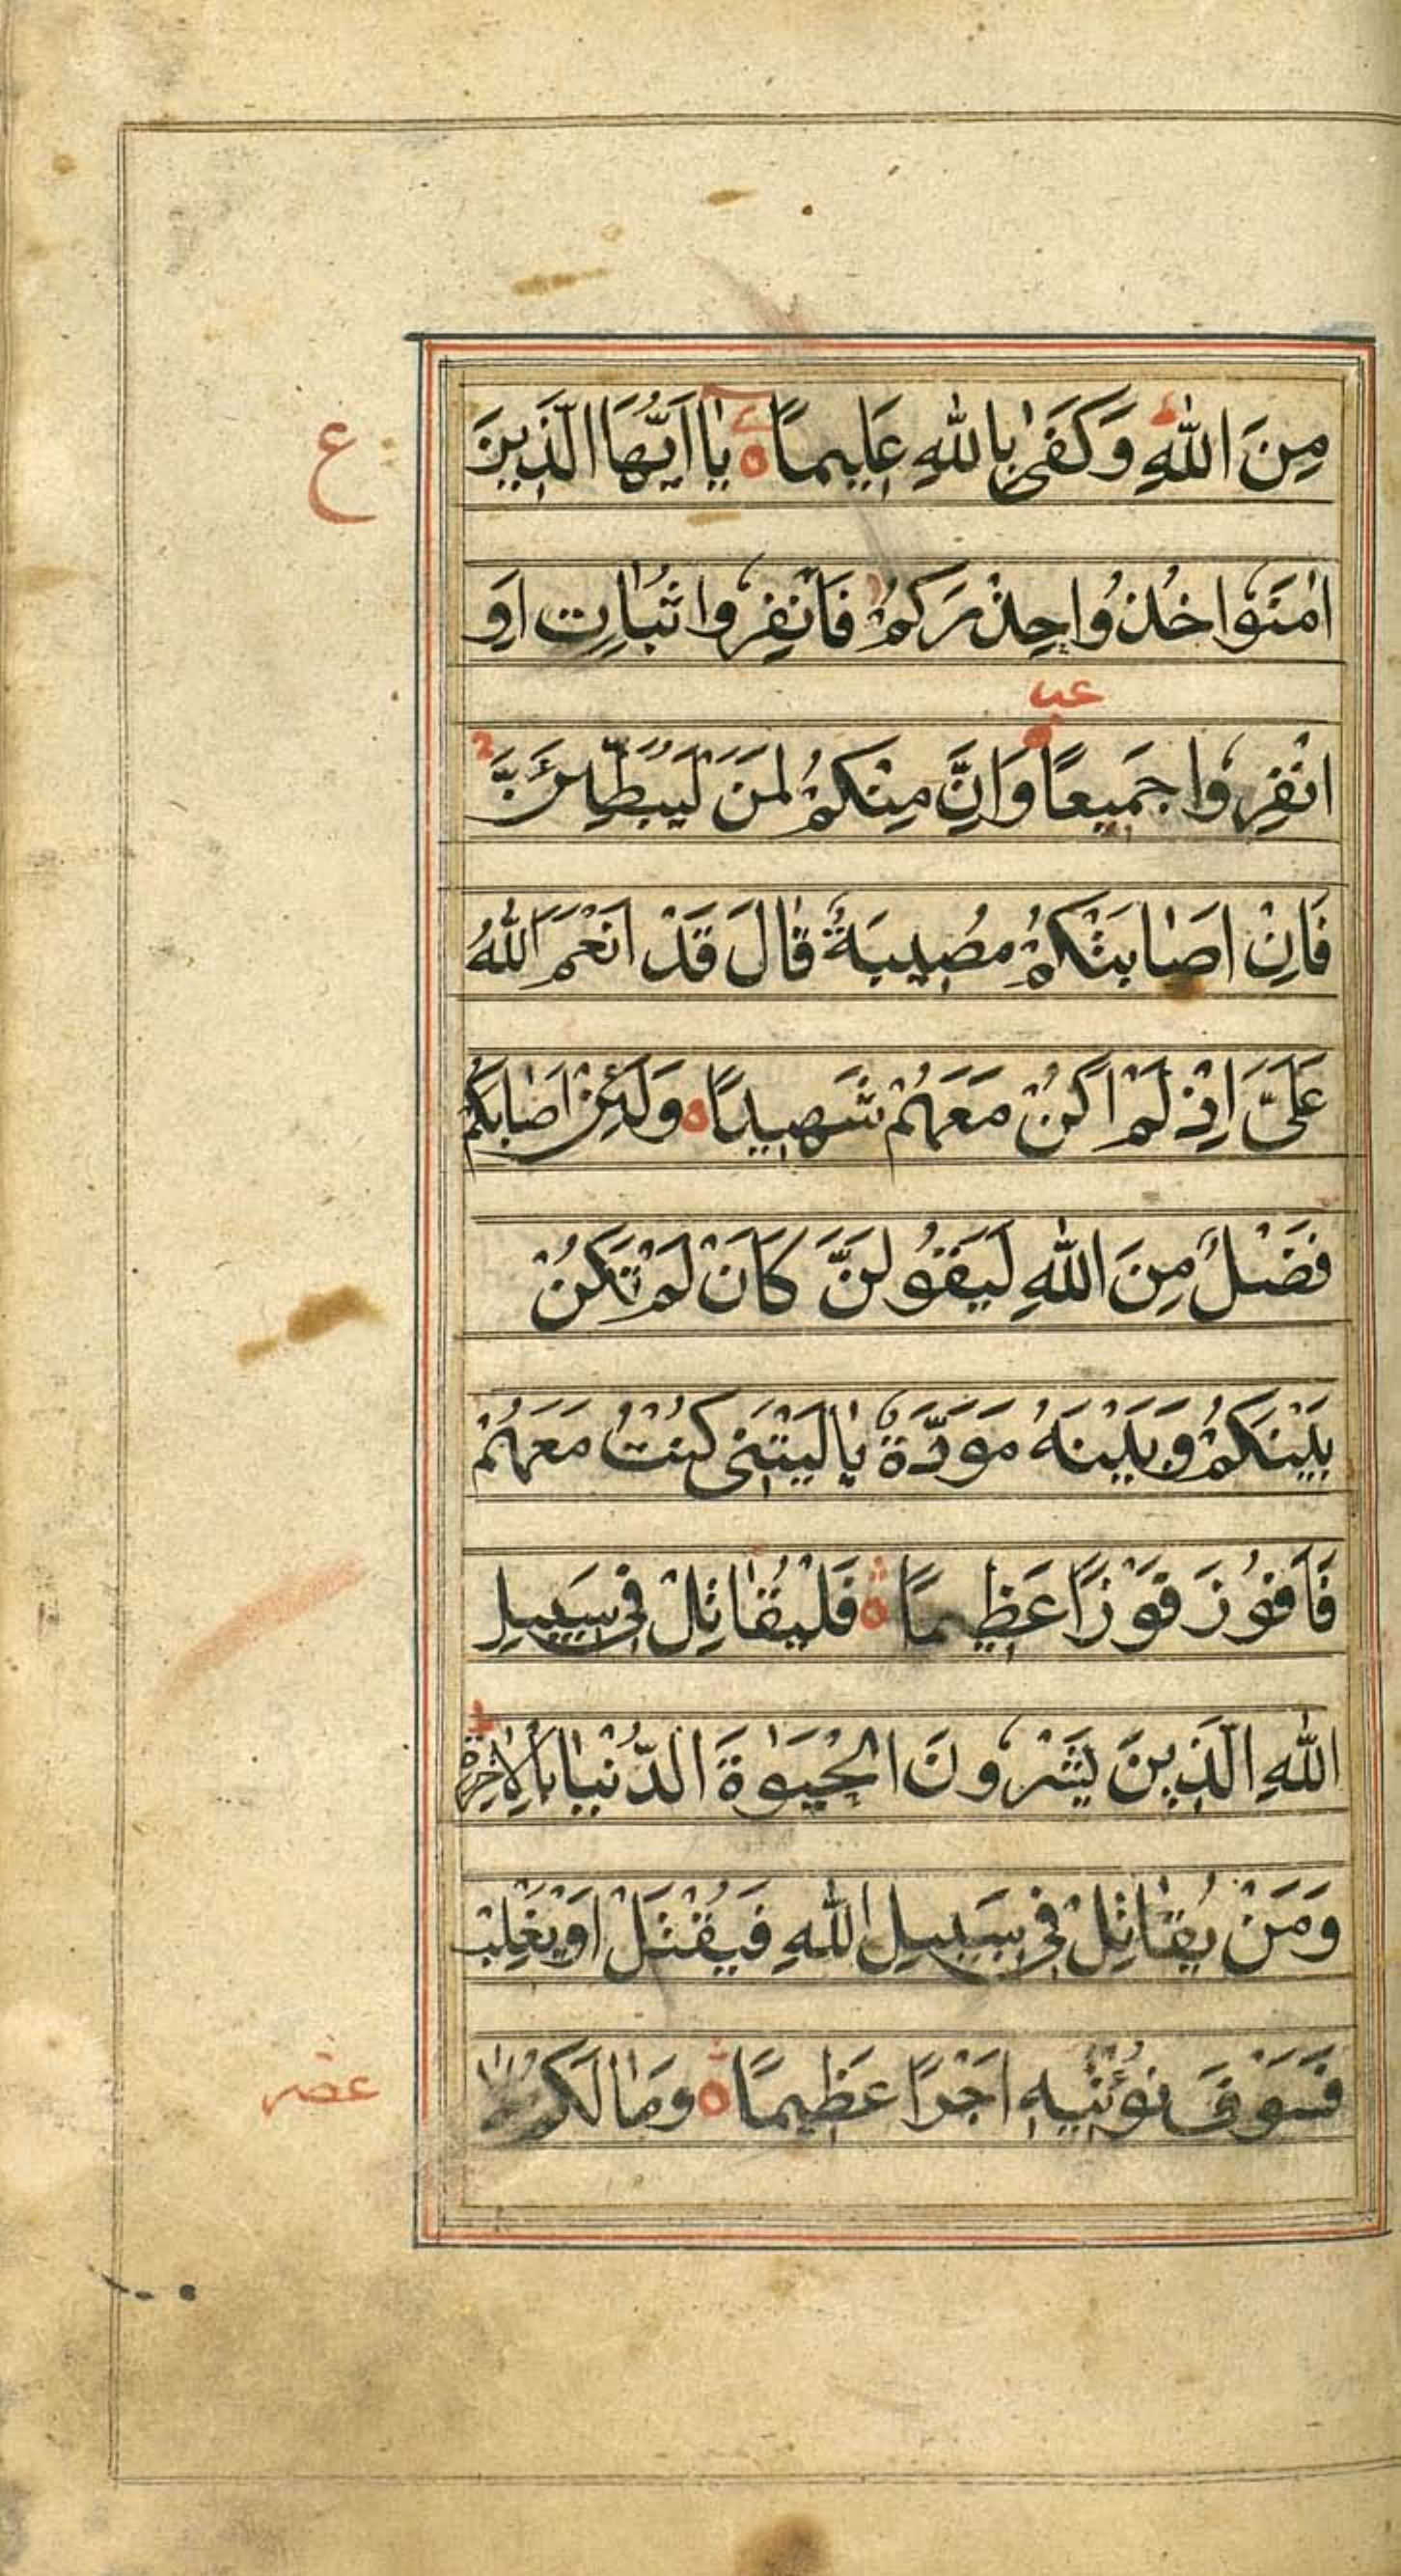 مِنَ اللّٰهِ وَكَفٰى بِاللّٰهِ عَلِيمًا ه يَا اَيُّهَا الَّذِينَ
ع
اٰمَنُوا خُذُوا حِذْرَكُمْ فَانْفِرُوا ثُبَاتٍ اَوِ
عب
انْفِرُوا جَمِيعًا وَاِنَّ مِنْكُمْ لَمَنْ لَيُبَطِّئَنَّ
فَاِنْ اَصَابَتْكُمْ مُصِيبَةٌ قَالَ قَدْ اَنْعَمَ اللّٰهُ
عَلَىَّ اِذْ لَمْ اَكُنْ مَعَهُمْ شَهِيدًا ه وَلَئِنْ اَصَابَكُمْ
فَضْلٌ مِنَ اللّٰهِ لَيَقُولَنَّ كَاَنْ لَمْ تَكُنْ
بَيْنَكُمْ وَبَيْنَهُ مَوَدَّةٌ يَا لَيْتَنِى كُنْتُ مَعَهُمْ
فَاَفُوزَ فَوْزًا عَظِيمًا ه فَلْيُقَاتِلْ فِى سَبِيلِ
اللّٰهِ الَّذِينَ يَشْرُونَ الْحَيٰوةَ الدُّنْيَا بِالْاٰخِرَةِ
وَمَنْ يُقَاتِلْ فِى سَبِيلِ اللّٰهِ فَيُقْتَلْ اَوْ يَغْلِبْ
فَسَوْفَ نُؤْتِيهِ اَجْرًا عَظِيمًا ه وَمَا لَكُمْ لَا